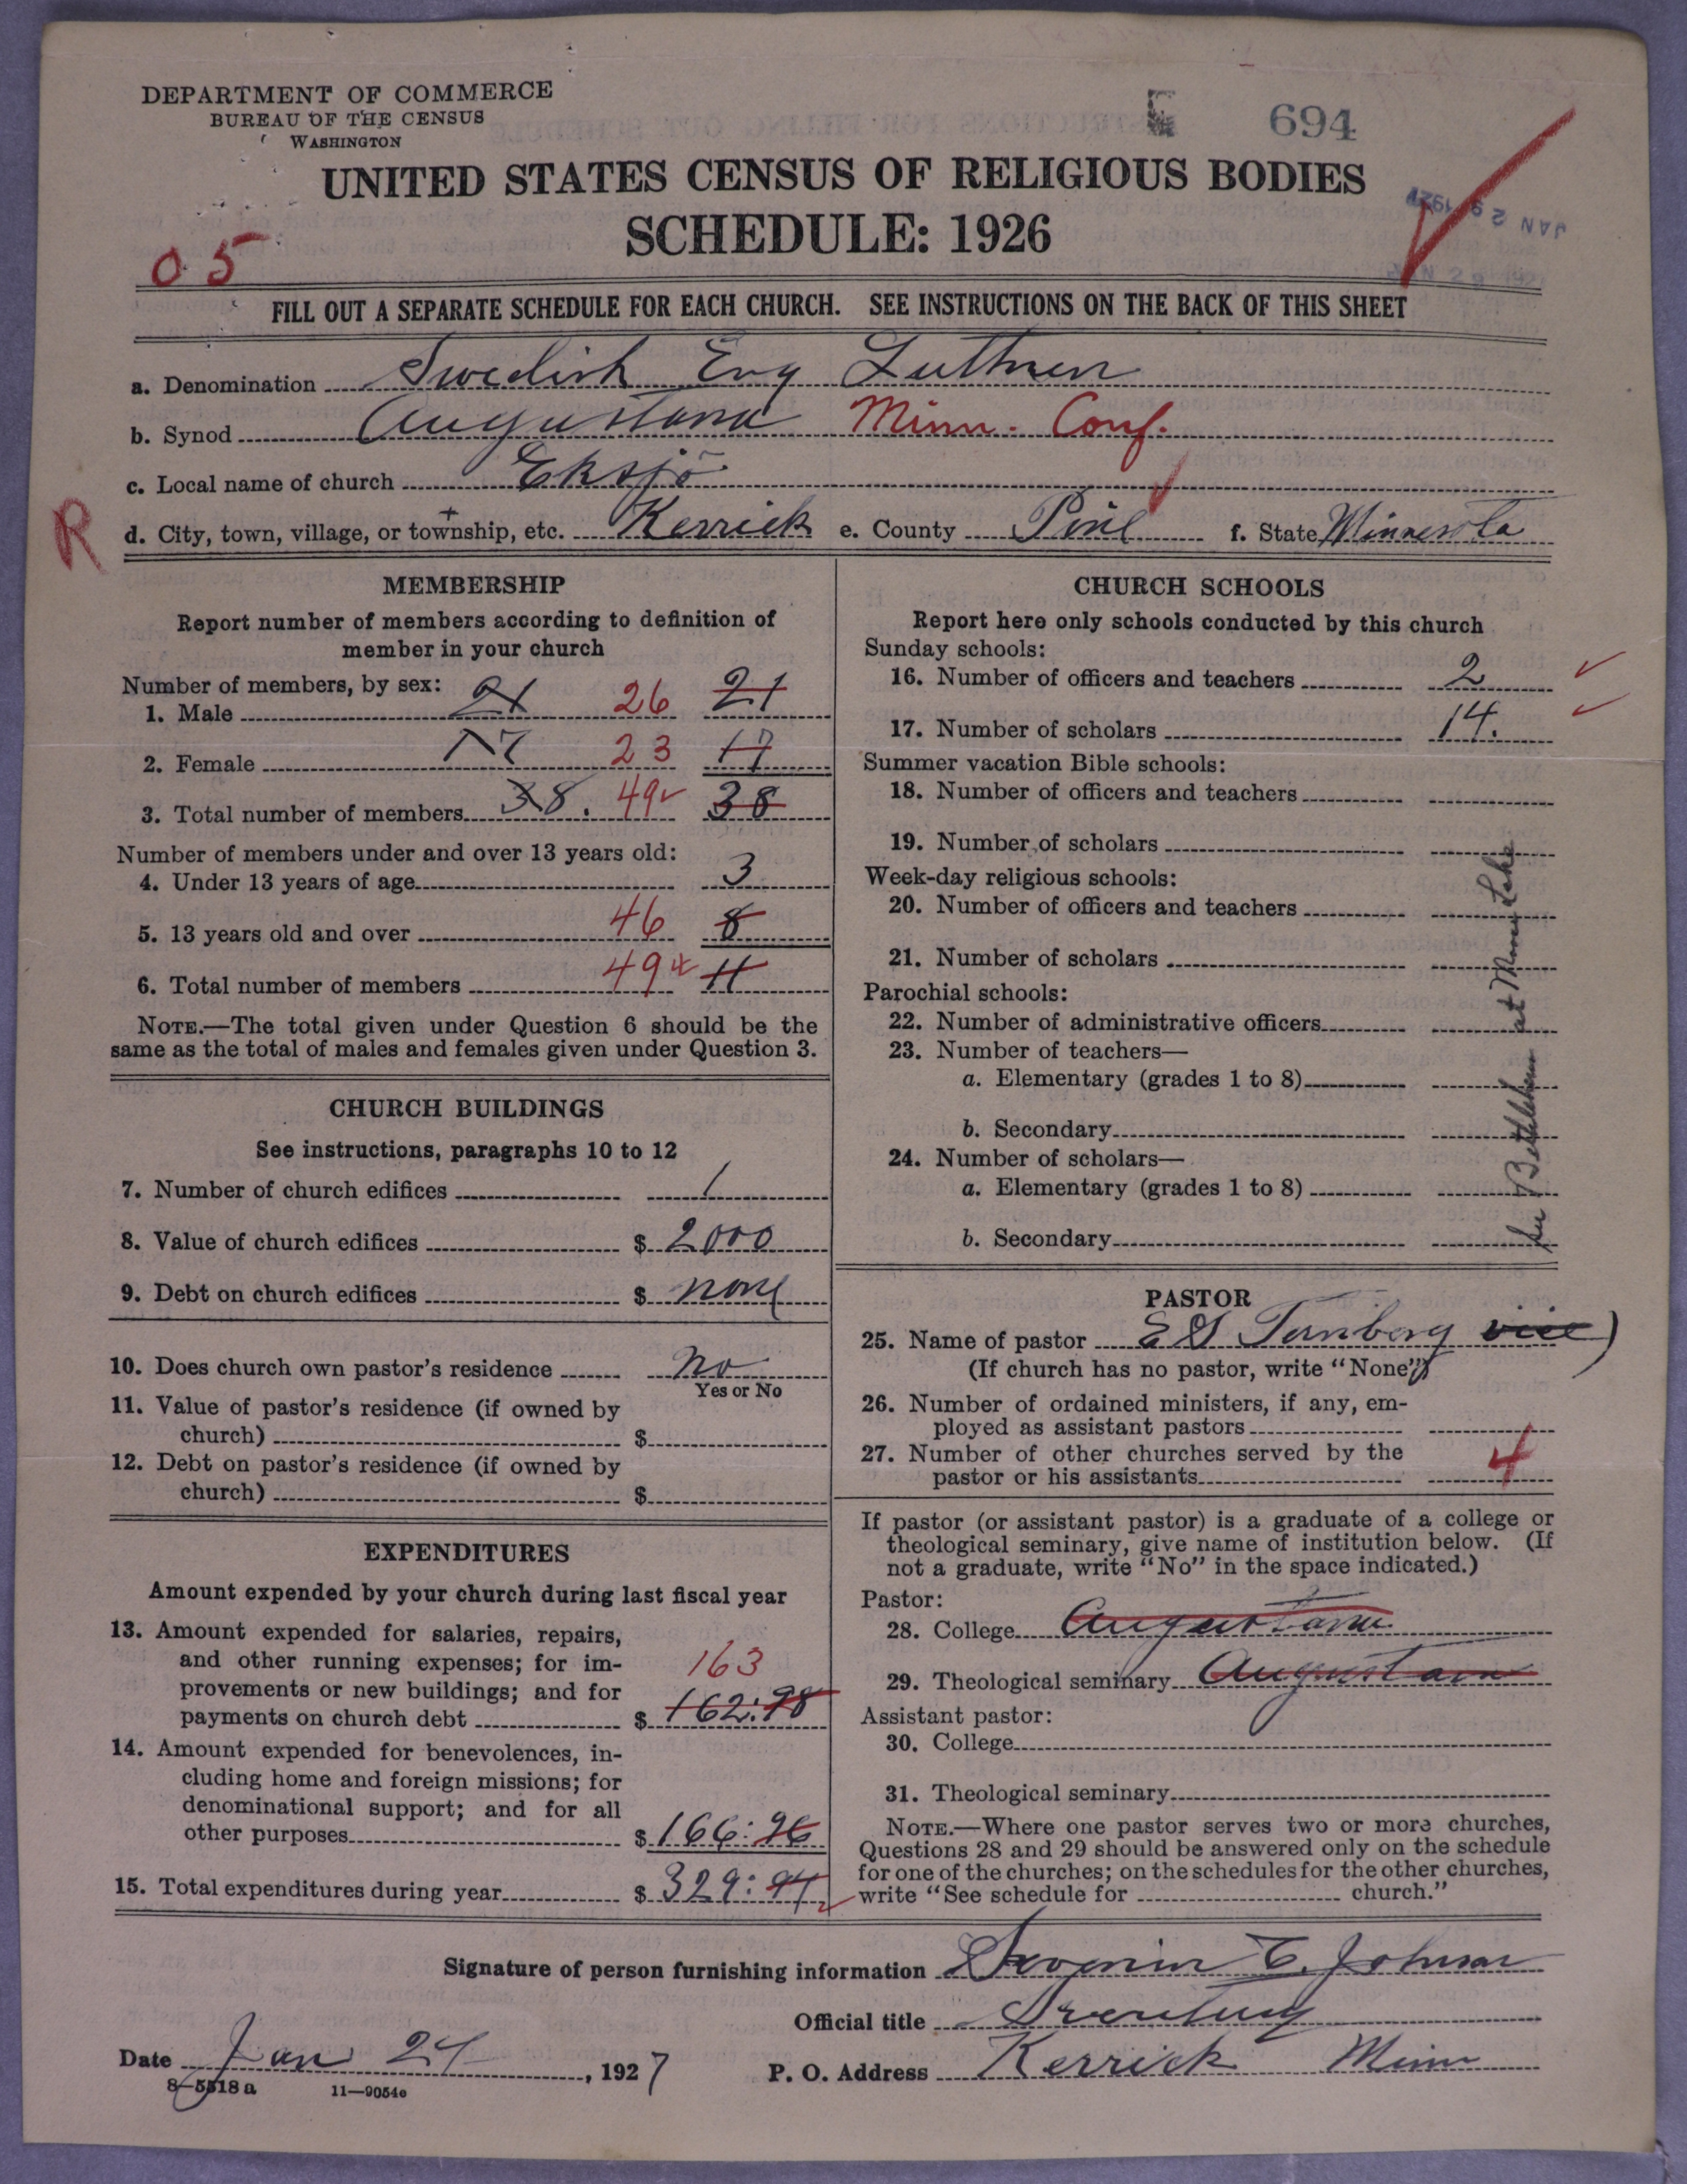 DEPARTMENT OF COMMERCE
BUREAU OF THE CENSUS
WASHINGTON
694
UNITED STATES CENSUS OF RELIGIOUS BODIES
SCHEDULE: 1926
JAN 29 1927
05
FILL OUT A SEPARATE SCHEDULE FOR EACH CHURCH. SEE INSTRUCTIONS ON THE BACK OF THIS SHEET
a. Denomination Swedish Evg Luthren
b. Synod Augustana Minn. Conf.
c. Local name of church Eksjö
R
d. City, town, village, or township, etc. Kerrick e. County Pine f. State Minnesota
MEMBERSHIP
Report number of members according to definition of
member in your church
Number of members, by sex:
1. Male 21 26 21
2. Female 17 23 17
3. Total number of members 38. 49 38
Number of members under and over 13 years old:
4. Under 13 years of age 3
5. 13 years old and over 46 8
6. Total number of members 49 11
NOTE.—The total given under Question 6 should be the
same as the total of males and females given under Question 3.
CHURCH BUILDINGS
See instructions, paragraphs 10 to 12
7. Number of church edifices 1
8. Value of church edifices $ 2000
9. Debt on church edifices $ none
10. Does church own pastor's residence No
Yes or No
11. Value of pastor's residence (if owned by
church) $
12. Debt on pastor's residence (if owned by
church) $
EXPENDITURES
Amount expended by your church during last fiscal year
13. Amount expended for salaries, repairs,
and other running expenses; for im-
provements or new buildings; and for
payments on church debt $ 163 162:98
14. Amount expended for benevolences, in-
cluding home and foreign missions; for
denominational support; and for all
other purposes $ 166:96
15. Total expenditures during year $ 329:94
CHURCH SCHOOLS
Report here only schools conducted by this church
Sunday schools:
16. Number of officers and teachers 2
17. Number of scholars 14.
Summer vacation Bible schools:
18. Number of officers and teachers
19. Number of scholars
Week-day religious schools:
20. Number of officers and teachers
21. Number of scholars
Parochial schools:
22. Number of administrative officers
23. Number of teachers—
a. Elementary (grades 1 to 8)
b. Secondary
24. Number of scholars—
a. Elementary (grades 1 to 8)
b. Secondary
Bethlehem at Lake
PASTOR
25. Name of pastor vice)
(If church has no pastor, write "None")
26. Number of ordained ministers, if any, em-
ployed as assistant pastors
27. Number of other churches served by the
pastor or his assistants 4
If pastor (or assistant pastor) is a graduate of a college or
theological seminary, give name of institution below. (If
not a graduate, write "No" in the space indicated.)
Pastor:
28. College Augustana
29. Theological seminary Augustana
Assistant pastor:
30. College
31. Theological seminary
NOTE.—Where one pastor serves two or more churches,
Questions 28 and 29 should be answered only on the schedule
for one of the churches; on the schedules for the other churches,
write "See schedule for church."
Signature of person furnishing information Severin E. Johnson
Official title Secretary
Date Jan 24, 1927 P. O. Address Kerrick Minn
8—5518 a 11—9054e